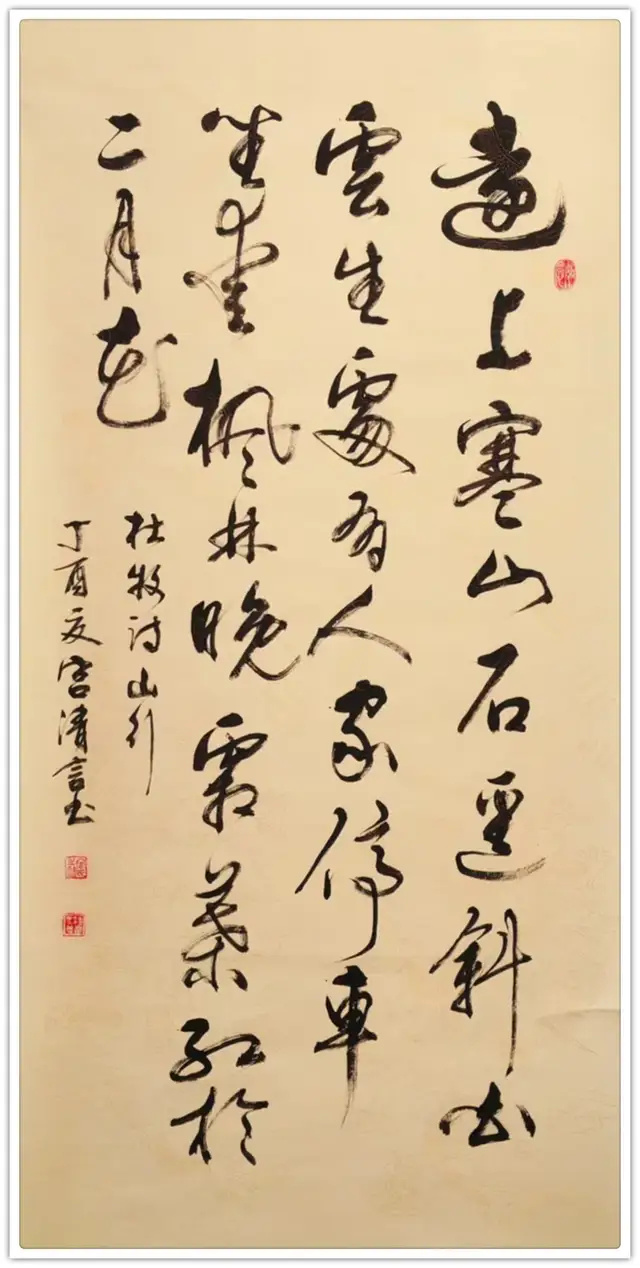 遠上寒山石逕斜白
雲生處有人家停車
坐愛楓林晚霜葉紅於
二月花
杜牧诗山行
丁酉夏宮清言书